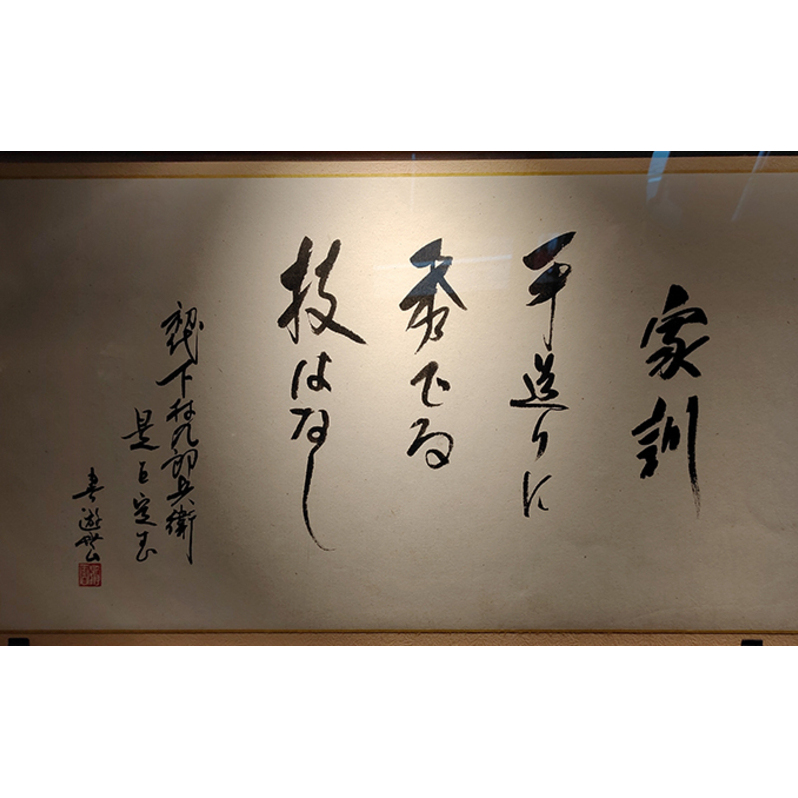 家訓
手造りに
秀でる
技はなし
初代下村九郎兵衛
是を定む
書